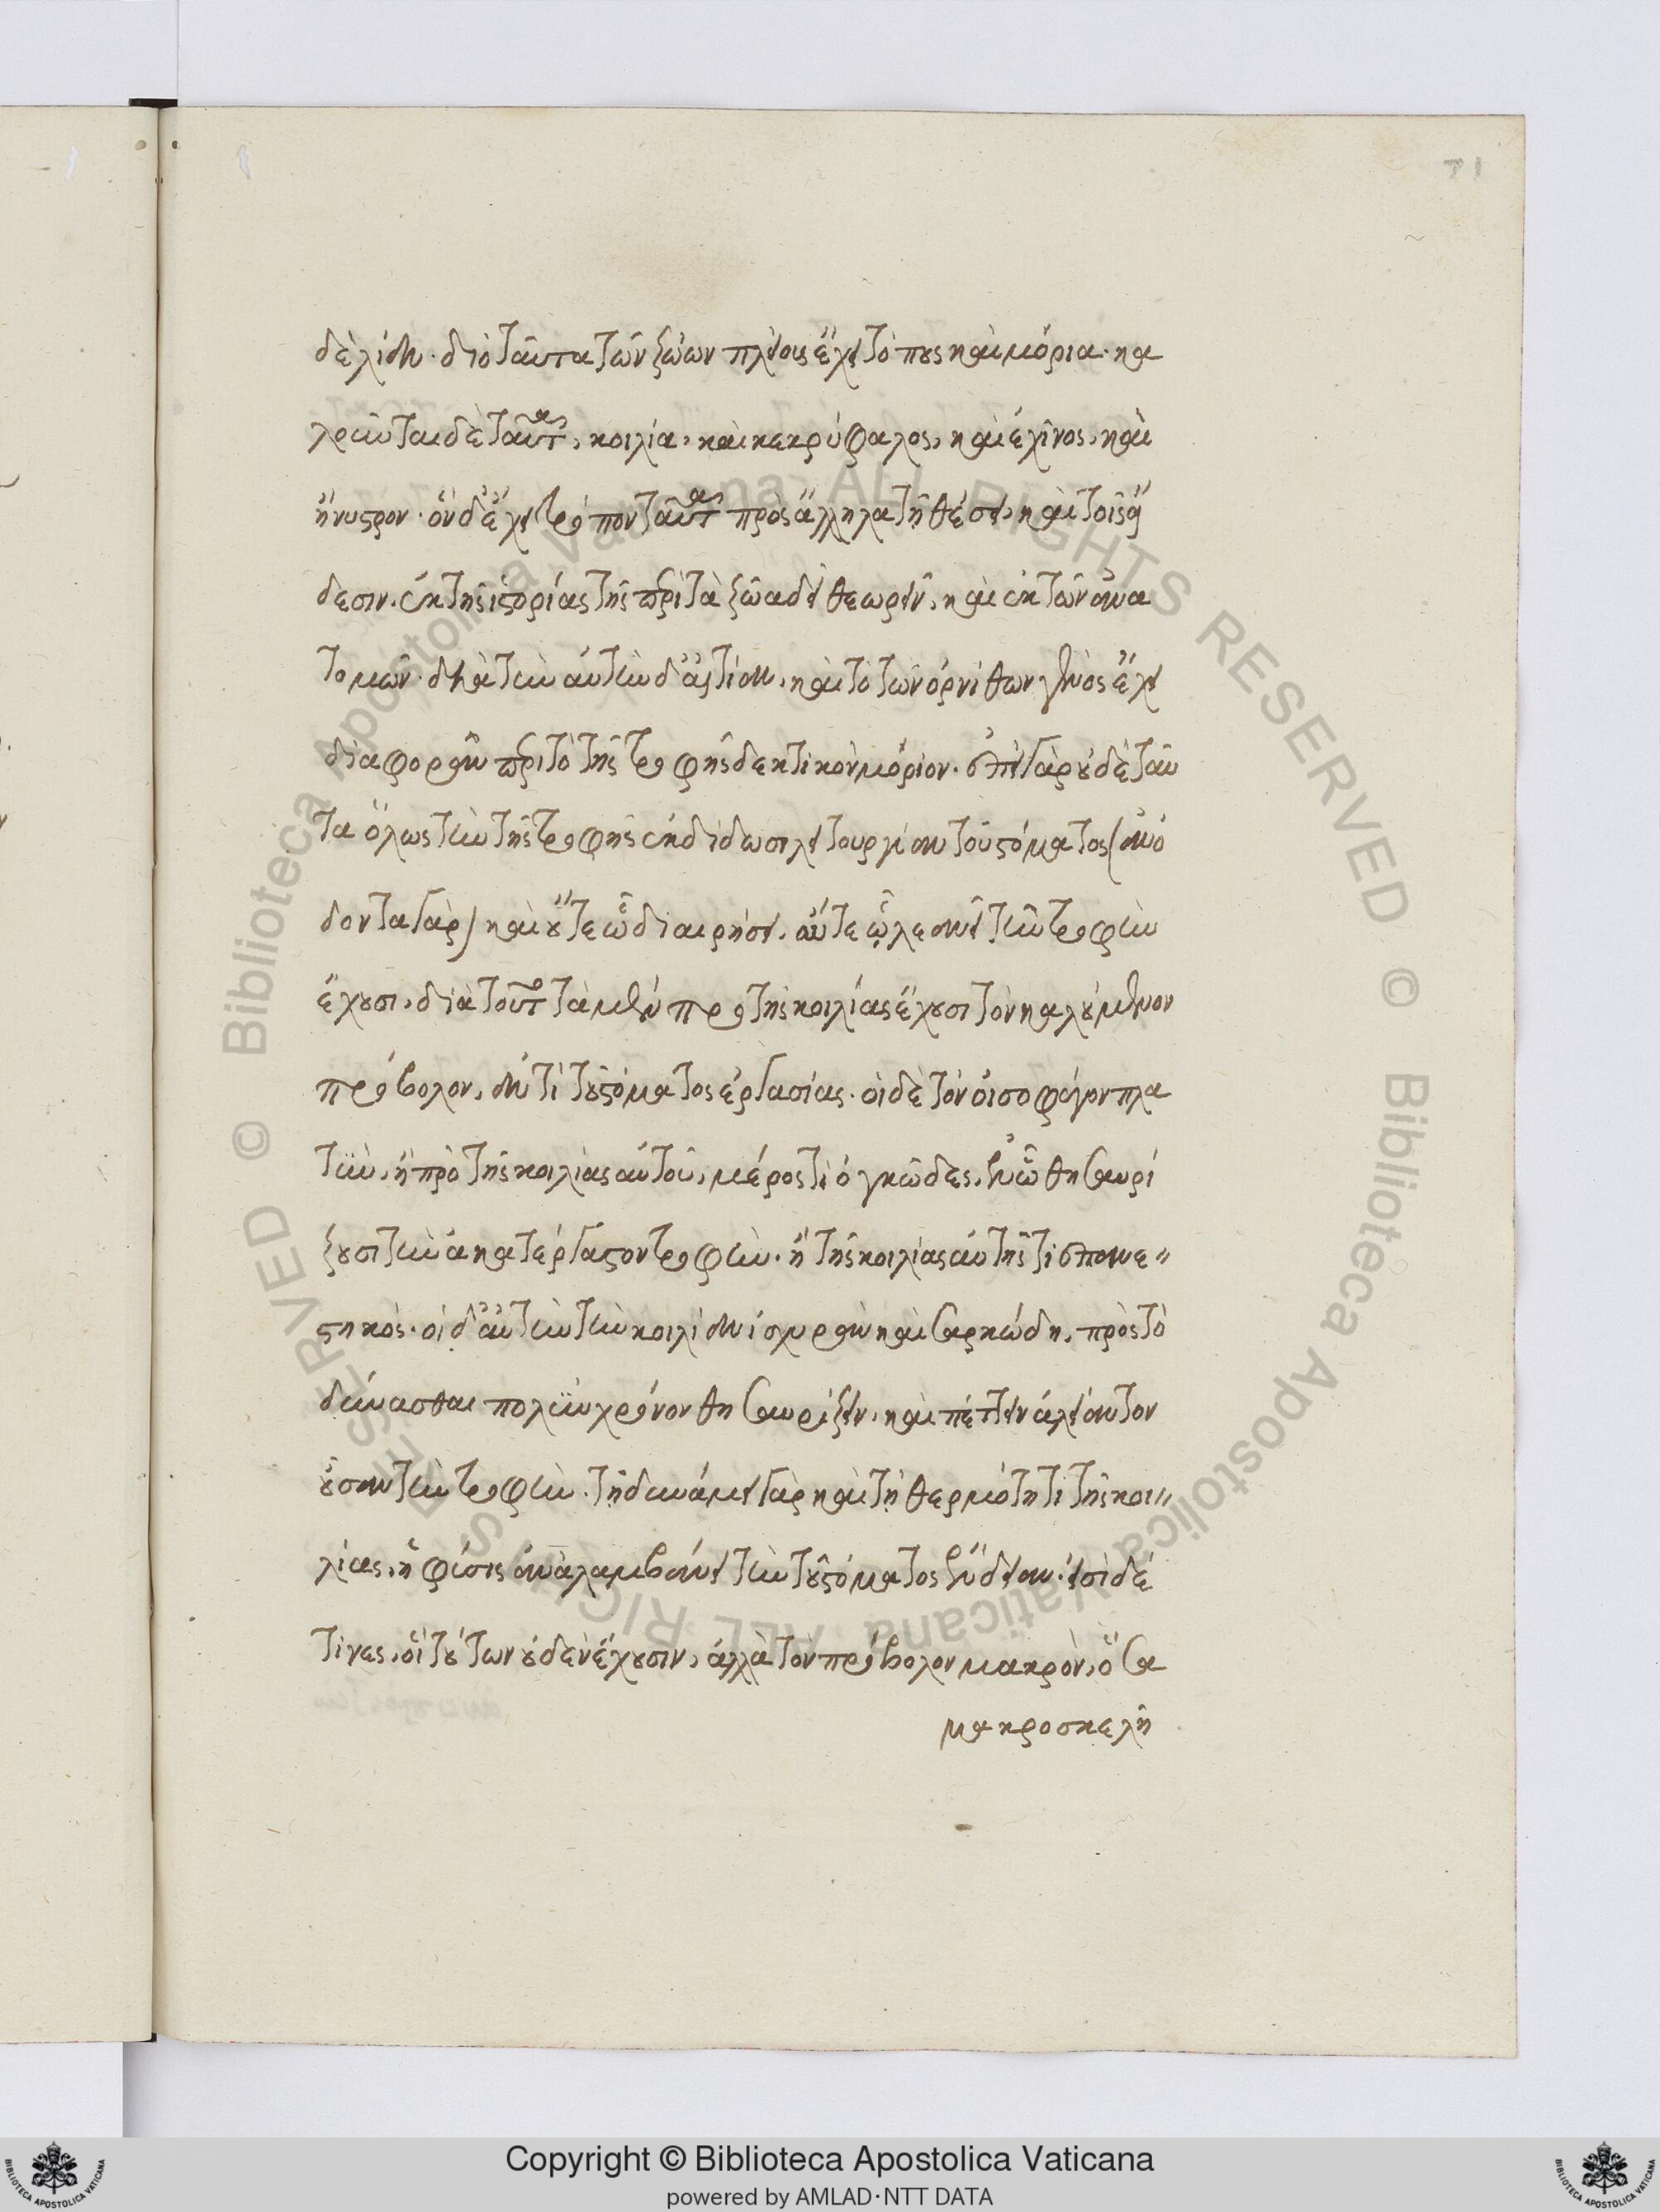 71
δὲ λίαν. διὸ ταῦτα τῶν ζώων πλείους ἔχει τόπους καὶ μόρια. κα
λοῦνται δὲ ταῦτα, κοιλία, καὶ κεκρύφαλος, καὶ ἐχῖνος, καὶ
ἤνυστρον. ὃν δ' ἔχει τρόπον ταῦτα πρὸς ἄλληλα τῇ θέσει, καὶ τοῖς εἴ
δεσιν. ἐκ τῆς ἱστορίας τῆς περὶ τὰ ζῶα δεῖ θεωρεῖν, καὶ ἐκ τῶν ἀνα
τομῶν. διὰ τὴν αὐτὴν δ' αἰτίαν, καὶ τὸ τῶν ὀρνίθων γένος ἔχει
διαφορὰν περὶ τὸ τῆς τροφῆς δεκτικὸν μόριον. ἐπεὶ γὰρ οὐδὲ ταῦ
τα ὅλως τὴν τῆς τροφῆς ἀποδίδωσι λειτουργίαν τοῦ στόματος (ἀνό
δοντα γὰρ) καὶ οὔτε ᾧ διαιρήσει, οὔτε ᾧ λεανεῖ τὴν τροφὴν
ἔχουσι, διὰ τοῦτο τὰ μὲν πρὸ τῆς κοιλίας ἔχουσι τὸν καλούμενον
πρόβολον, ἀντὶ τοῦ στόματος ἐργασίας. οἱ δὲ τὸν οἰσοφάγον πλα
τὺν, ἢ πρὸ τῆς κοιλίας αὐτοῦ, μέρος τι ὀγκῶδες, ἐν ᾧ θησαυρί
ζουσι τὴν ἀκατέργαστον τροφὴν. ἢ τῆς κοιλίας αὐτῆς τι ἐπανε〃
στηκός. οἱ δ' αὐτὴν τὴν κοιλίαν ἰσχυρὰν καὶ σαρκώδη, πρὸς τὸ
δύνασθαι πολὺν χρόνον θησαυρίζειν, καὶ πέττειν ἀλείαντον
οὖσαν τὴν τροφὴν. τῇ δυνάμει γὰρ καὶ τῇ θερμότητι τῆς κοι〃
λίας, ἡ φύσις ἀναλαμβάνει τὴν τοῦ στόματος ἔνδειαν. εἰσὶ δέ
τινες, οἳ τούτων οὐδὲν ἔχουσιν, ἀλλὰ τὸν πρόβολον μακρὸν, ὅσα
μακροσκελῆ
Copyright © Biblioteca Apostolica Vaticana
powered by AMLAD·NTT DATA